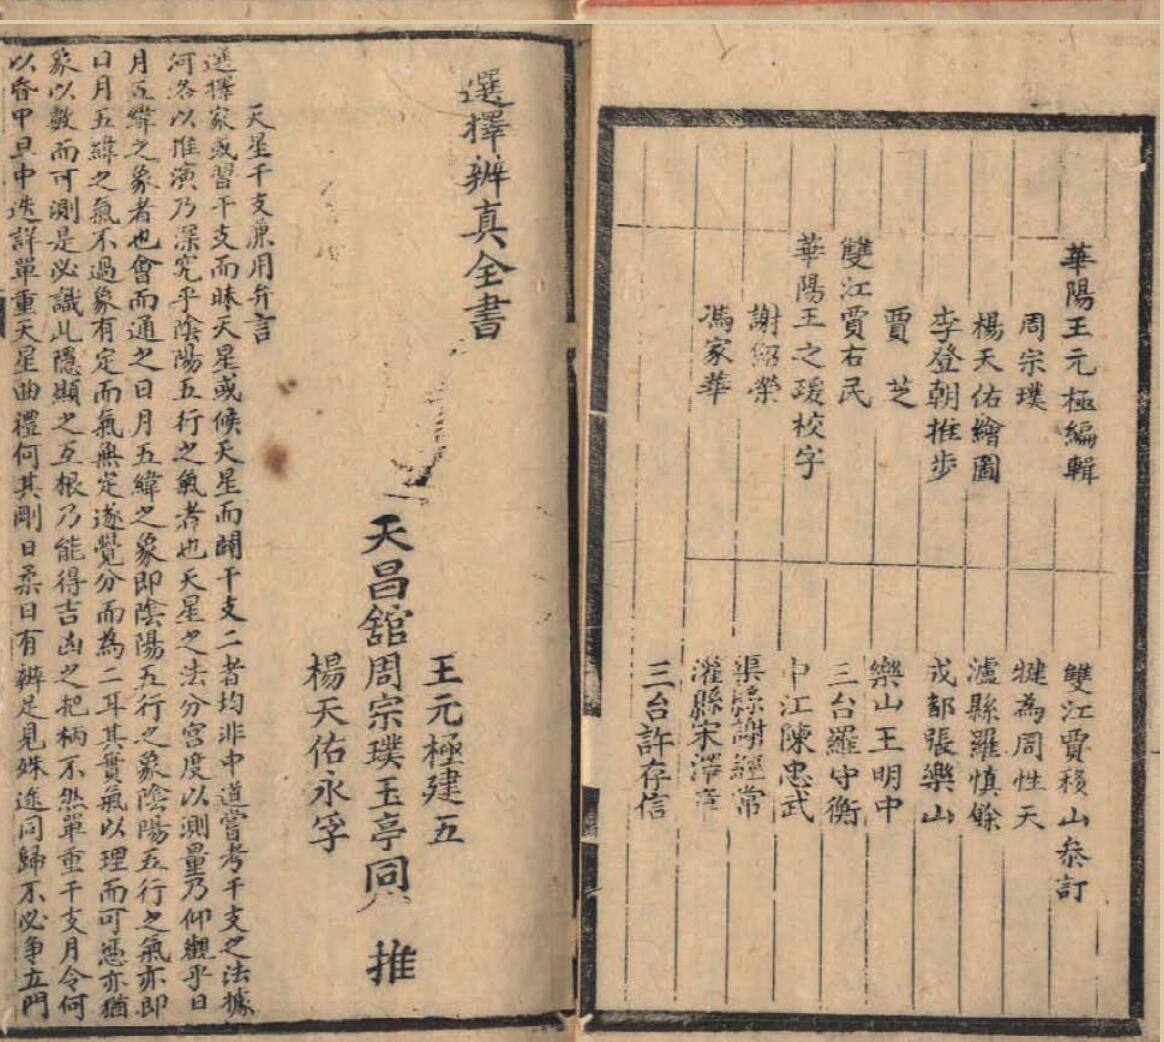 華陽王元極編輯
周宗璞
楊天佑繪圖
李登朝推步
賈芝
雙江賈右民
華陽王之瑗校字
謝紹榮
馮家華
雙江賈積山叅訂
犍為周性天
瀘縣羅慎餘
成都張樂山
樂山王明中
三台羅守衡
中江陳忠武
渠縣謝經常
灌縣宋澤章
三台許存信
選擇辨真全書
王元極建五
天昌舘周宗璞玉亭同推
楊天佑永孚
天星干支兼用弁言
選擇家或習干支而昧天星或候天星而闢干支二者均非中道嘗考干支之法據
河洛以推演乃深究乎陰陽五行之氣者也天星之法分宮度以測量乃仰觀乎日
月五緯之象者也會而通之日月五緯之象即陰陽五行之象陰陽五行之氣亦即
日月五緯之氣不過象有定而氣無定遂覺分而為二耳其實氣以理而可憑亦猶
象以數而可測是必識此隱顯之互根乃能得吉凶之把柄不然單重干支月令何
以昏中旦中迭詳單重天星曲禮何其剛日柔日有辨足見殊途同歸不必争立門